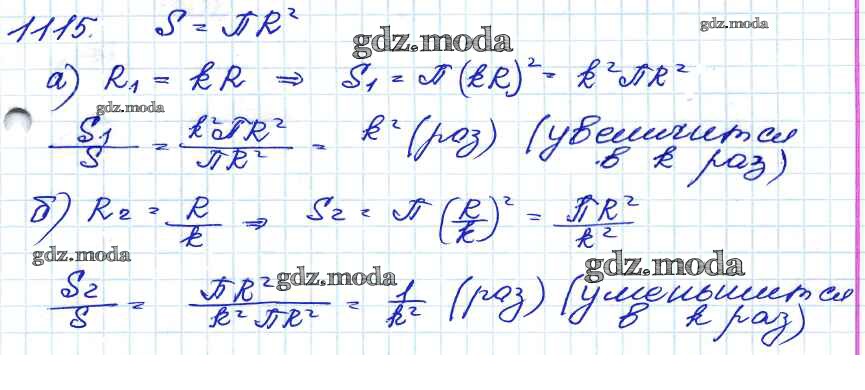 1115. S = πR²
gdz.moda
gdz.moda
а) R₁ = kR ⇒ S₁ = π(kR)² = k²πR²
gdz.moda
S₁/S = k²πR²/πR² = k² (раз) (увеличится
в k раз)
б) R₂ = R/k ⇒ S₂ = π(R/k)² = πR²/k²
gdz.moda
gdz.moda
gdz.moda
S₂/S = πR²/k²πR² = 1/k² (раз) (уменьшится
в k раз)